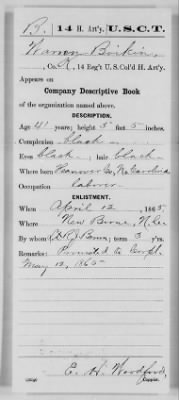 B. | 14 H. Art'y. | U.S.C.T.
Warren
, Co. , 14 Reg't U. S. Col'd H. Art'y.
Appears on
Company Descriptive Book
of the organization named above.
DESCRIPTION.
Age 41 years; height 5 feet 5 inches.
Complexion black
Eyes black, hair black
Where born Co, No. Carolina
Occupation laborer
ENLISTMENT.
When April 12, 1865.
Where New Berne, N.C.
By whom ; term 3 y'rs.
Remarks: Promoted to Corpl.
May 12, 1865
E. W. Woodford,
Copyist.